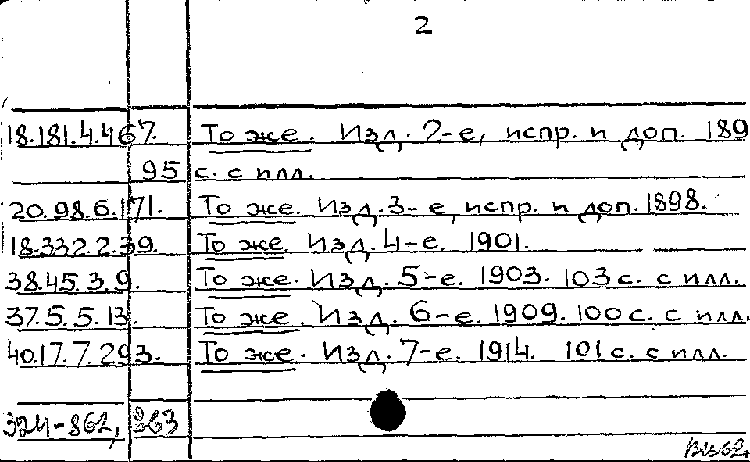 2
18.181.4.467. То же. Изд. 2-е, испр. и доп. 189
95 с. с илл.
20.98.6.171. То же. Изд. 3-е, испр. и доп. 1898.
18.332.2.39. То же. Изд. 4-е. 1901.
38.45.3.9. То же. Изд. 5-е. 1903. 103 с. с илл.
37.5.5.13. То же. Изд. 6-е. 1909. 100 с. с илл.
40.17.7.293. То же. Изд. 7-е. 1914. 101 с. с илл.
324-862, 263